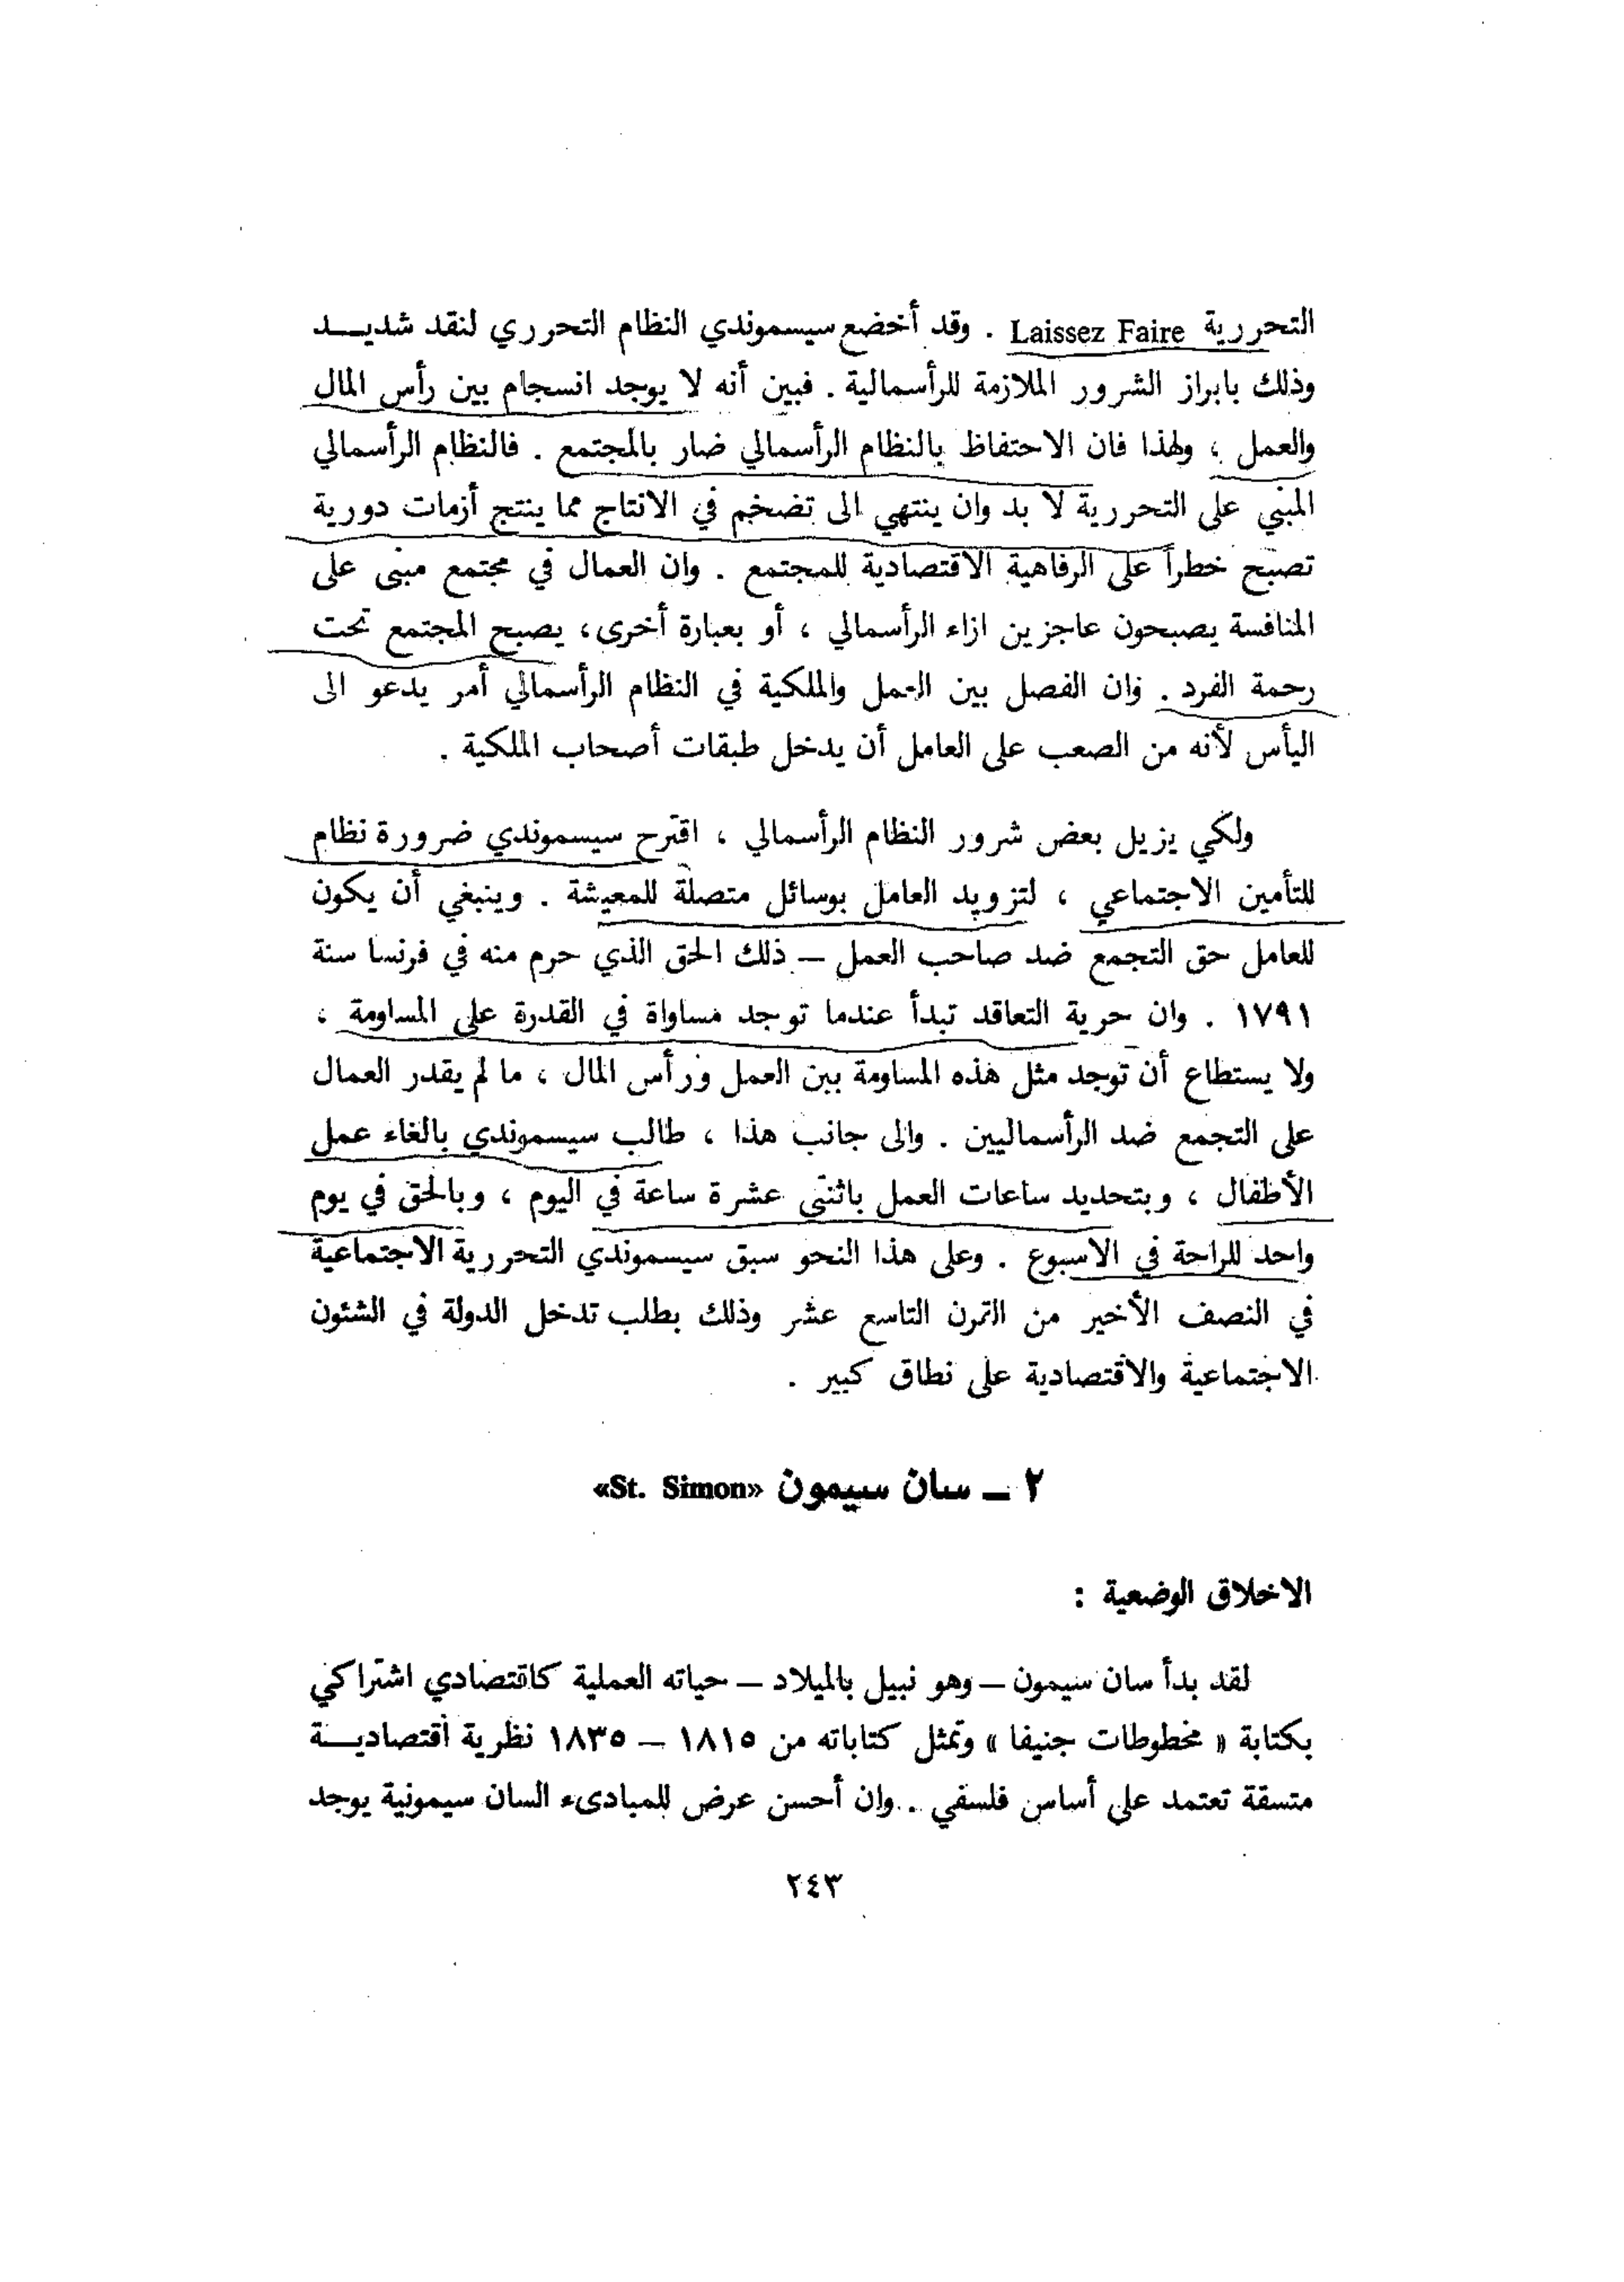 التحررية Laissez Faire . وقد أخضع سيسموندي النظام التحرري لنقد شديـــد
وذلك بابراز الشرور الملازمة للرأسمالية . فبين أنه لا يوجد انسجام بين رأس المال
والعمل ، ولهذا فان الاحتفاظ بالنظام الرأسمالي ضار بالمجتمع . فالنظام الرأسمالي
المبني على التحررية لا بد وان ينتهي الى تضخم في الانتاج مما ينتج أزمات دورية
تصبح خطراً على الرفاهية الاقتصادية للمجتمع . وان العمال في مجتمع مبنى على
المنافسة يصبحون عاجزين ازاء الرأسمالي ، أو بعبارة أخرى، يصبح المجتمع تحت
رحمة الفرد . وان الفصل بين العمل والملكية في النظام الرأسمالي أمر يدعو الى
اليأس لأنه من الصعب على العامل أن يدخل طبقات أصحاب الملكية .
ولكي يزيل بعض شرور النظام الرأسمالي ، اقترح سيسموندي ضرورة نظام
للتأمين الاجتماعي ، لتزويد العامل بوسائل متصلة للمعيشة . وينبغي أن يكون
للعامل حق التجمع ضد صاحب العمل – ذلك الحق الذي حرم منه في فرنسا سنة
١٧٩١ . وان حرية التعاقد تبدأ عندما توجد مساواة في القدرة على المساومة ،
ولا يستطاع أن توجد مثل هذه المساومة بين العمل ورأس المال ، ما لم يقدر العمال
على التجمع ضد الرأسماليين . والى جانب هذا ، طالب سيسموندي بالغاء عمل
الأطفال ، وبتحديد ساعات العمل باثنتى عشرة ساعة في اليوم ، وبالحق في يوم
واحد للراحة في الاسبوع . وعلى هذا النحو سبق سيسموندي التحررية الاجتماعية
في النصف الأخير من القرن التاسع عشر وذلك بطلب تدخل الدولة في الشئون
الاجتماعية والاقتصادية على نطاق كبير .
٢ ــ سان سيمون «St. Simon»
الاخلاق الوضعية :
لقد بدأ سان سيمون – وهو نبيل بالميلاد – حياته العملية كاقتصادي اشتراكي
بكتابة « مخطوطات جنيفا » وتمثل كتاباته من ١٨١٥ – ١٨٣٥ نظرية اقتصاديـــة
متسقة تعتمد على أساس فلسفي . وان أحسن عرض للمبادىء السان سيمونية يوجد
٢٤٣